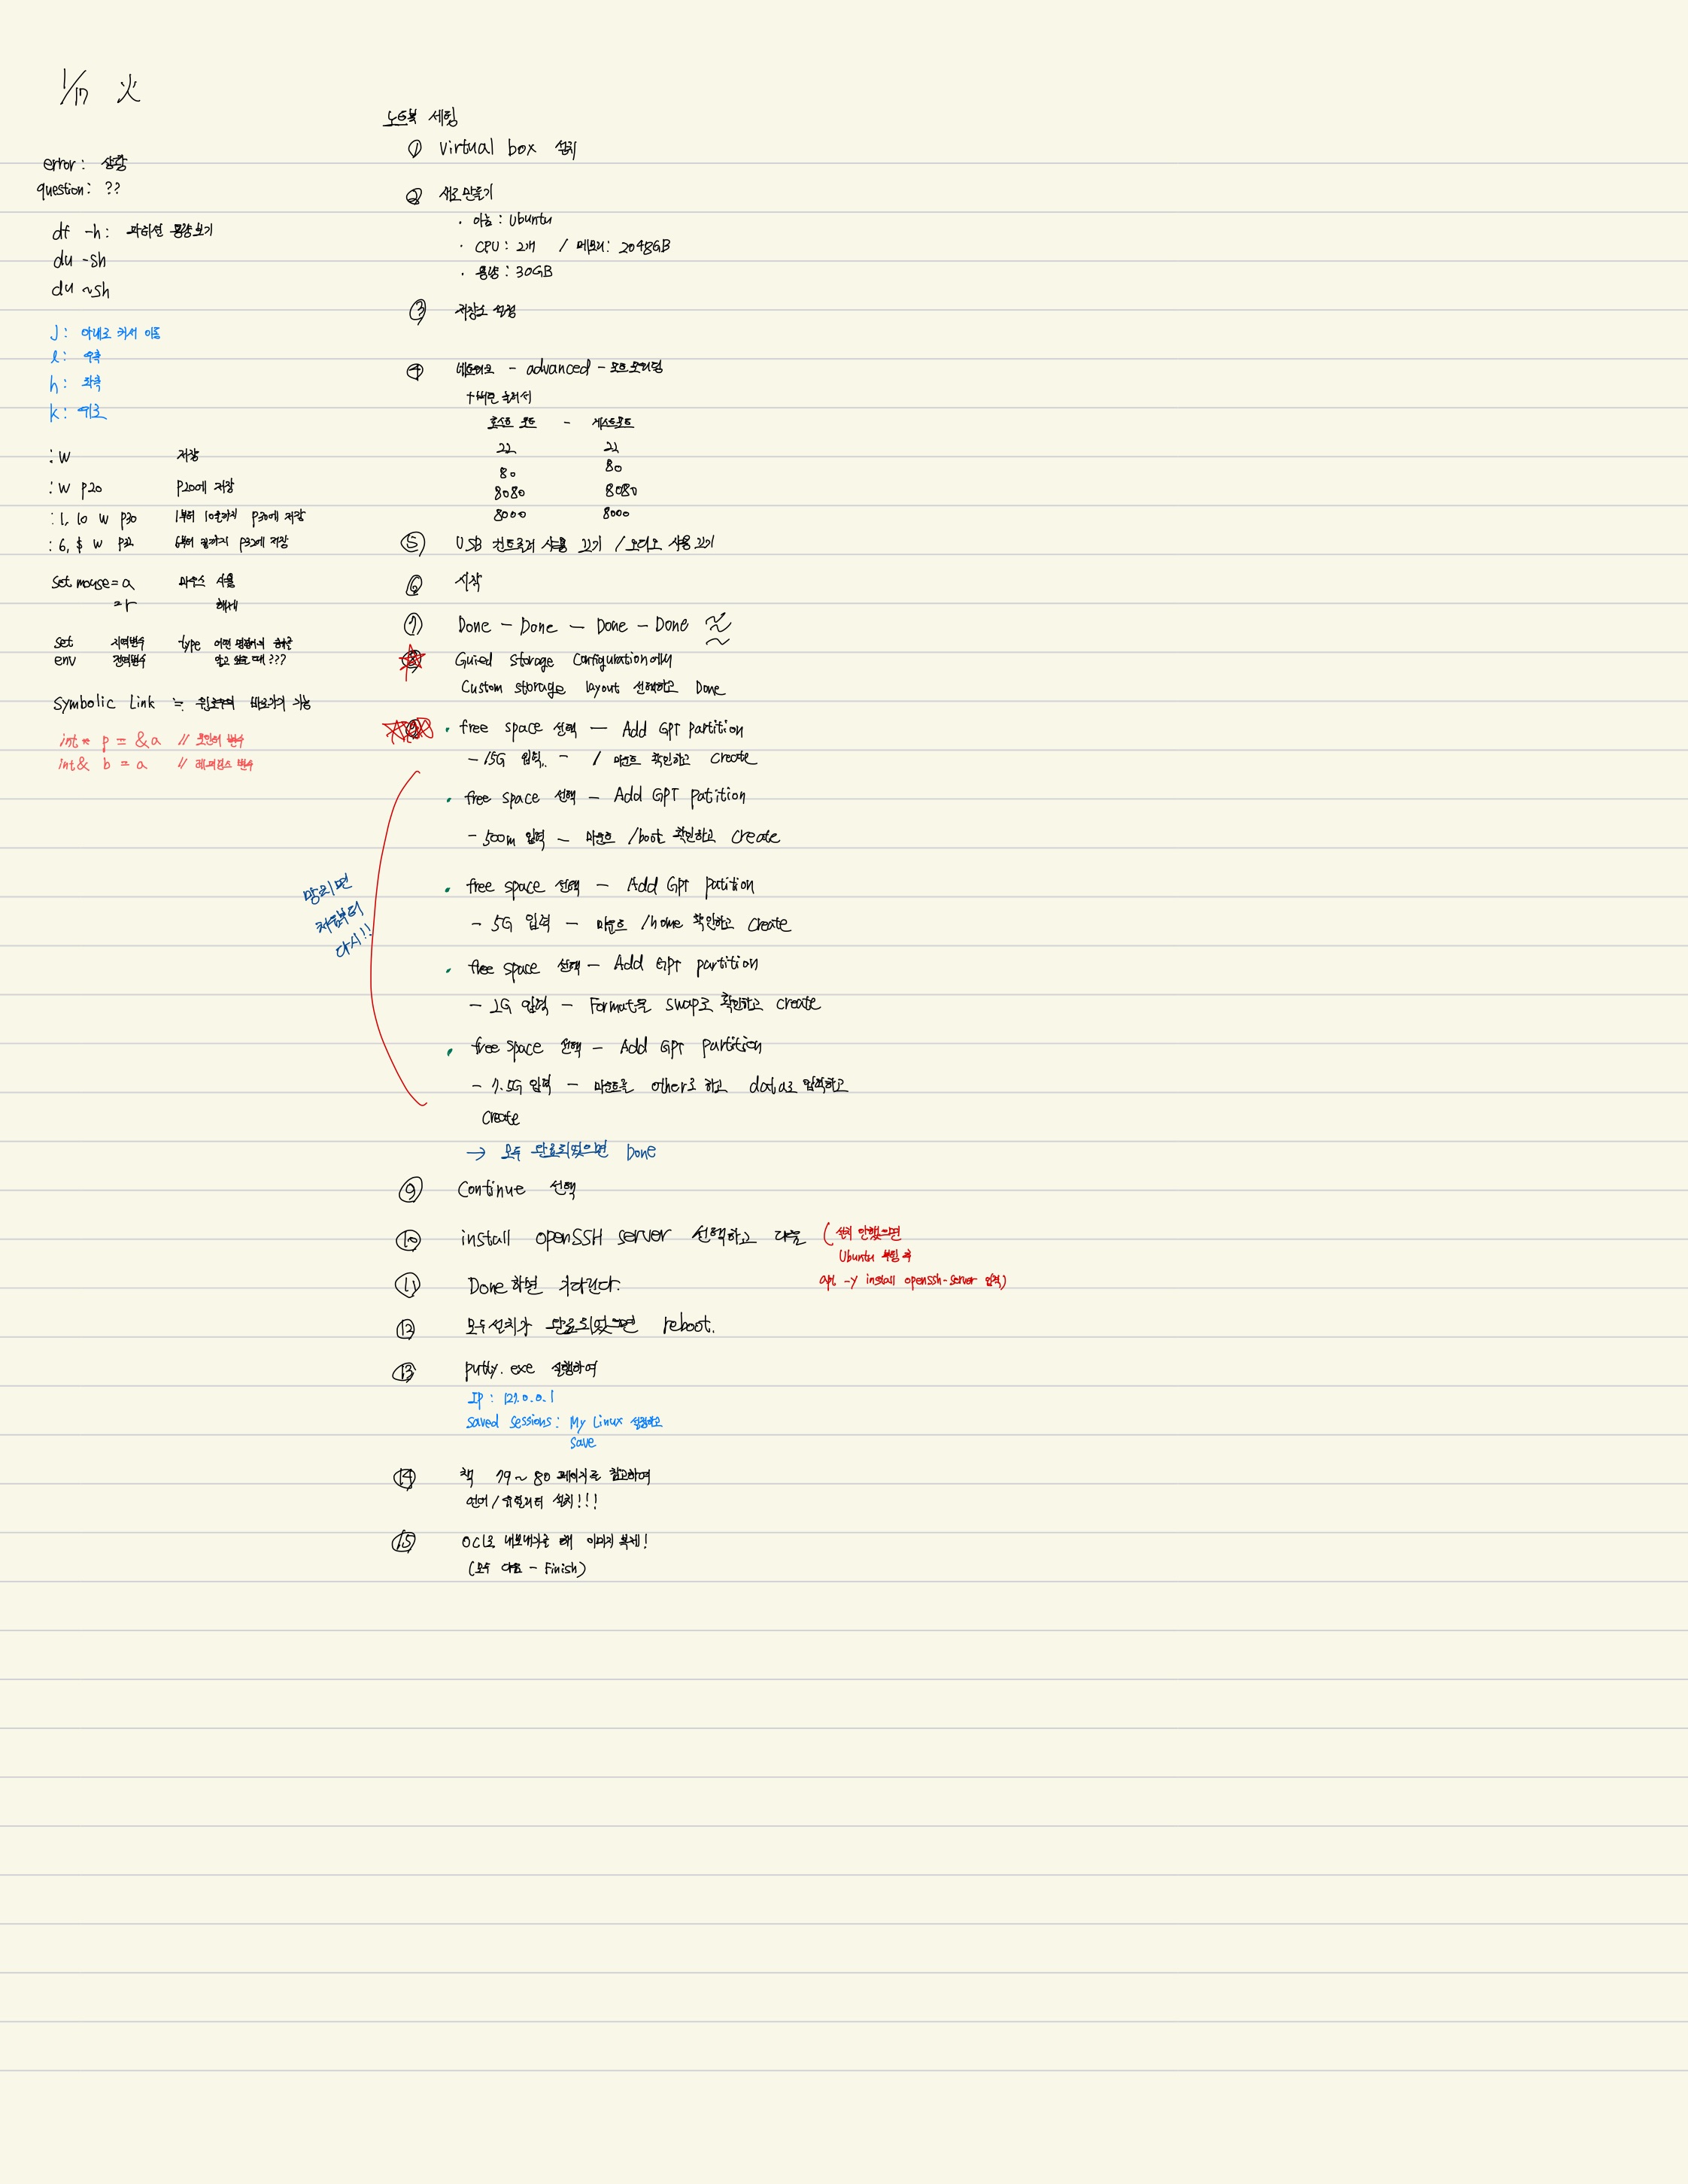 1/17 火
error: 상황
question: ??
df -h: 파티션 용량보기
du -sh
du ~sh
J: 아래로 커서 이동
l: 우측
h: 좌측
k: 위로
:w 저장
:w p20 p20에 저장
:1, 10 w p30 1부터 10줄까지 p30에 저장
:6, $ w p32 6부터 끝까지 p32에 저장
set mouse=a 마우스 사용
=r 해제
set 지역변수 type 어떤 명령어의 종류를
env 전역변수 알고 싶을 때???
symbolic Link ≒ 윈도우의 바로가기 기능
int* p = &a // 포인터 변수
int& b = a // 레퍼런스 변수
노트북 세팅
① Virtual box 설치
② 새로만들기
· 이름: Ubuntu
· CPU: 2개 / 메모리: 2048GB
· 용량: 30GB
③ 저장소 설정
④ 네트워크 - advanced - 포트포워딩
+버튼 눌러서
호스트 포트 - 게스트포트
22 22
80 80
8080 8080
8000 8000
⑤ USB 컨트롤러 사용 끄기 / 오디오 사용끄기
⑥ 시작
⑦ Done - Done - Done - Done
⑧ Guied storage Configuration에서
Custom storage layout 선택하고 Done
· free space 선택 - Add GPT partition
- 15G 입력.. - / 마운트 확인하고 Create
· free space 선택 - Add GPT patition
- 500m 입력 - 마운트 /boot 확인하고 create
망치면
처음부터
다시!!
· free space 선택 - Add GPT patition
- 5G 입력 - 마운트 /home 확인하고 create
· free space 선택 - Add GPT partition
- 2G 입력 - Format을 swap로 확인하고 create
· free space 선택 - Add GPT partition
- 7.5G 입력 - 마운트을 other로 하고 data로 입력하고
create
→ 모두 완료되었으면 Done
⑨ Continue 선택
⑩ install openSSH server 선택하고 다음 (설치 안했으면
Ubuntu 부팅 후
apt -y install openssh-server 입력)
⑪ Done하면 기다린다.
⑫ 모두설치가 완료되었으면 reboot.
⑬ putty.exe 실행하여
IP: 127.0.0.1
saved sessions: My Linux 설정하고
save
⑭ 책 79~80 페이지를 참고하여
언어/유틸리티 설치!!!
⑮ OCI로 내보내기를 해 이미지 복제!
(모두 다음 - Finish)